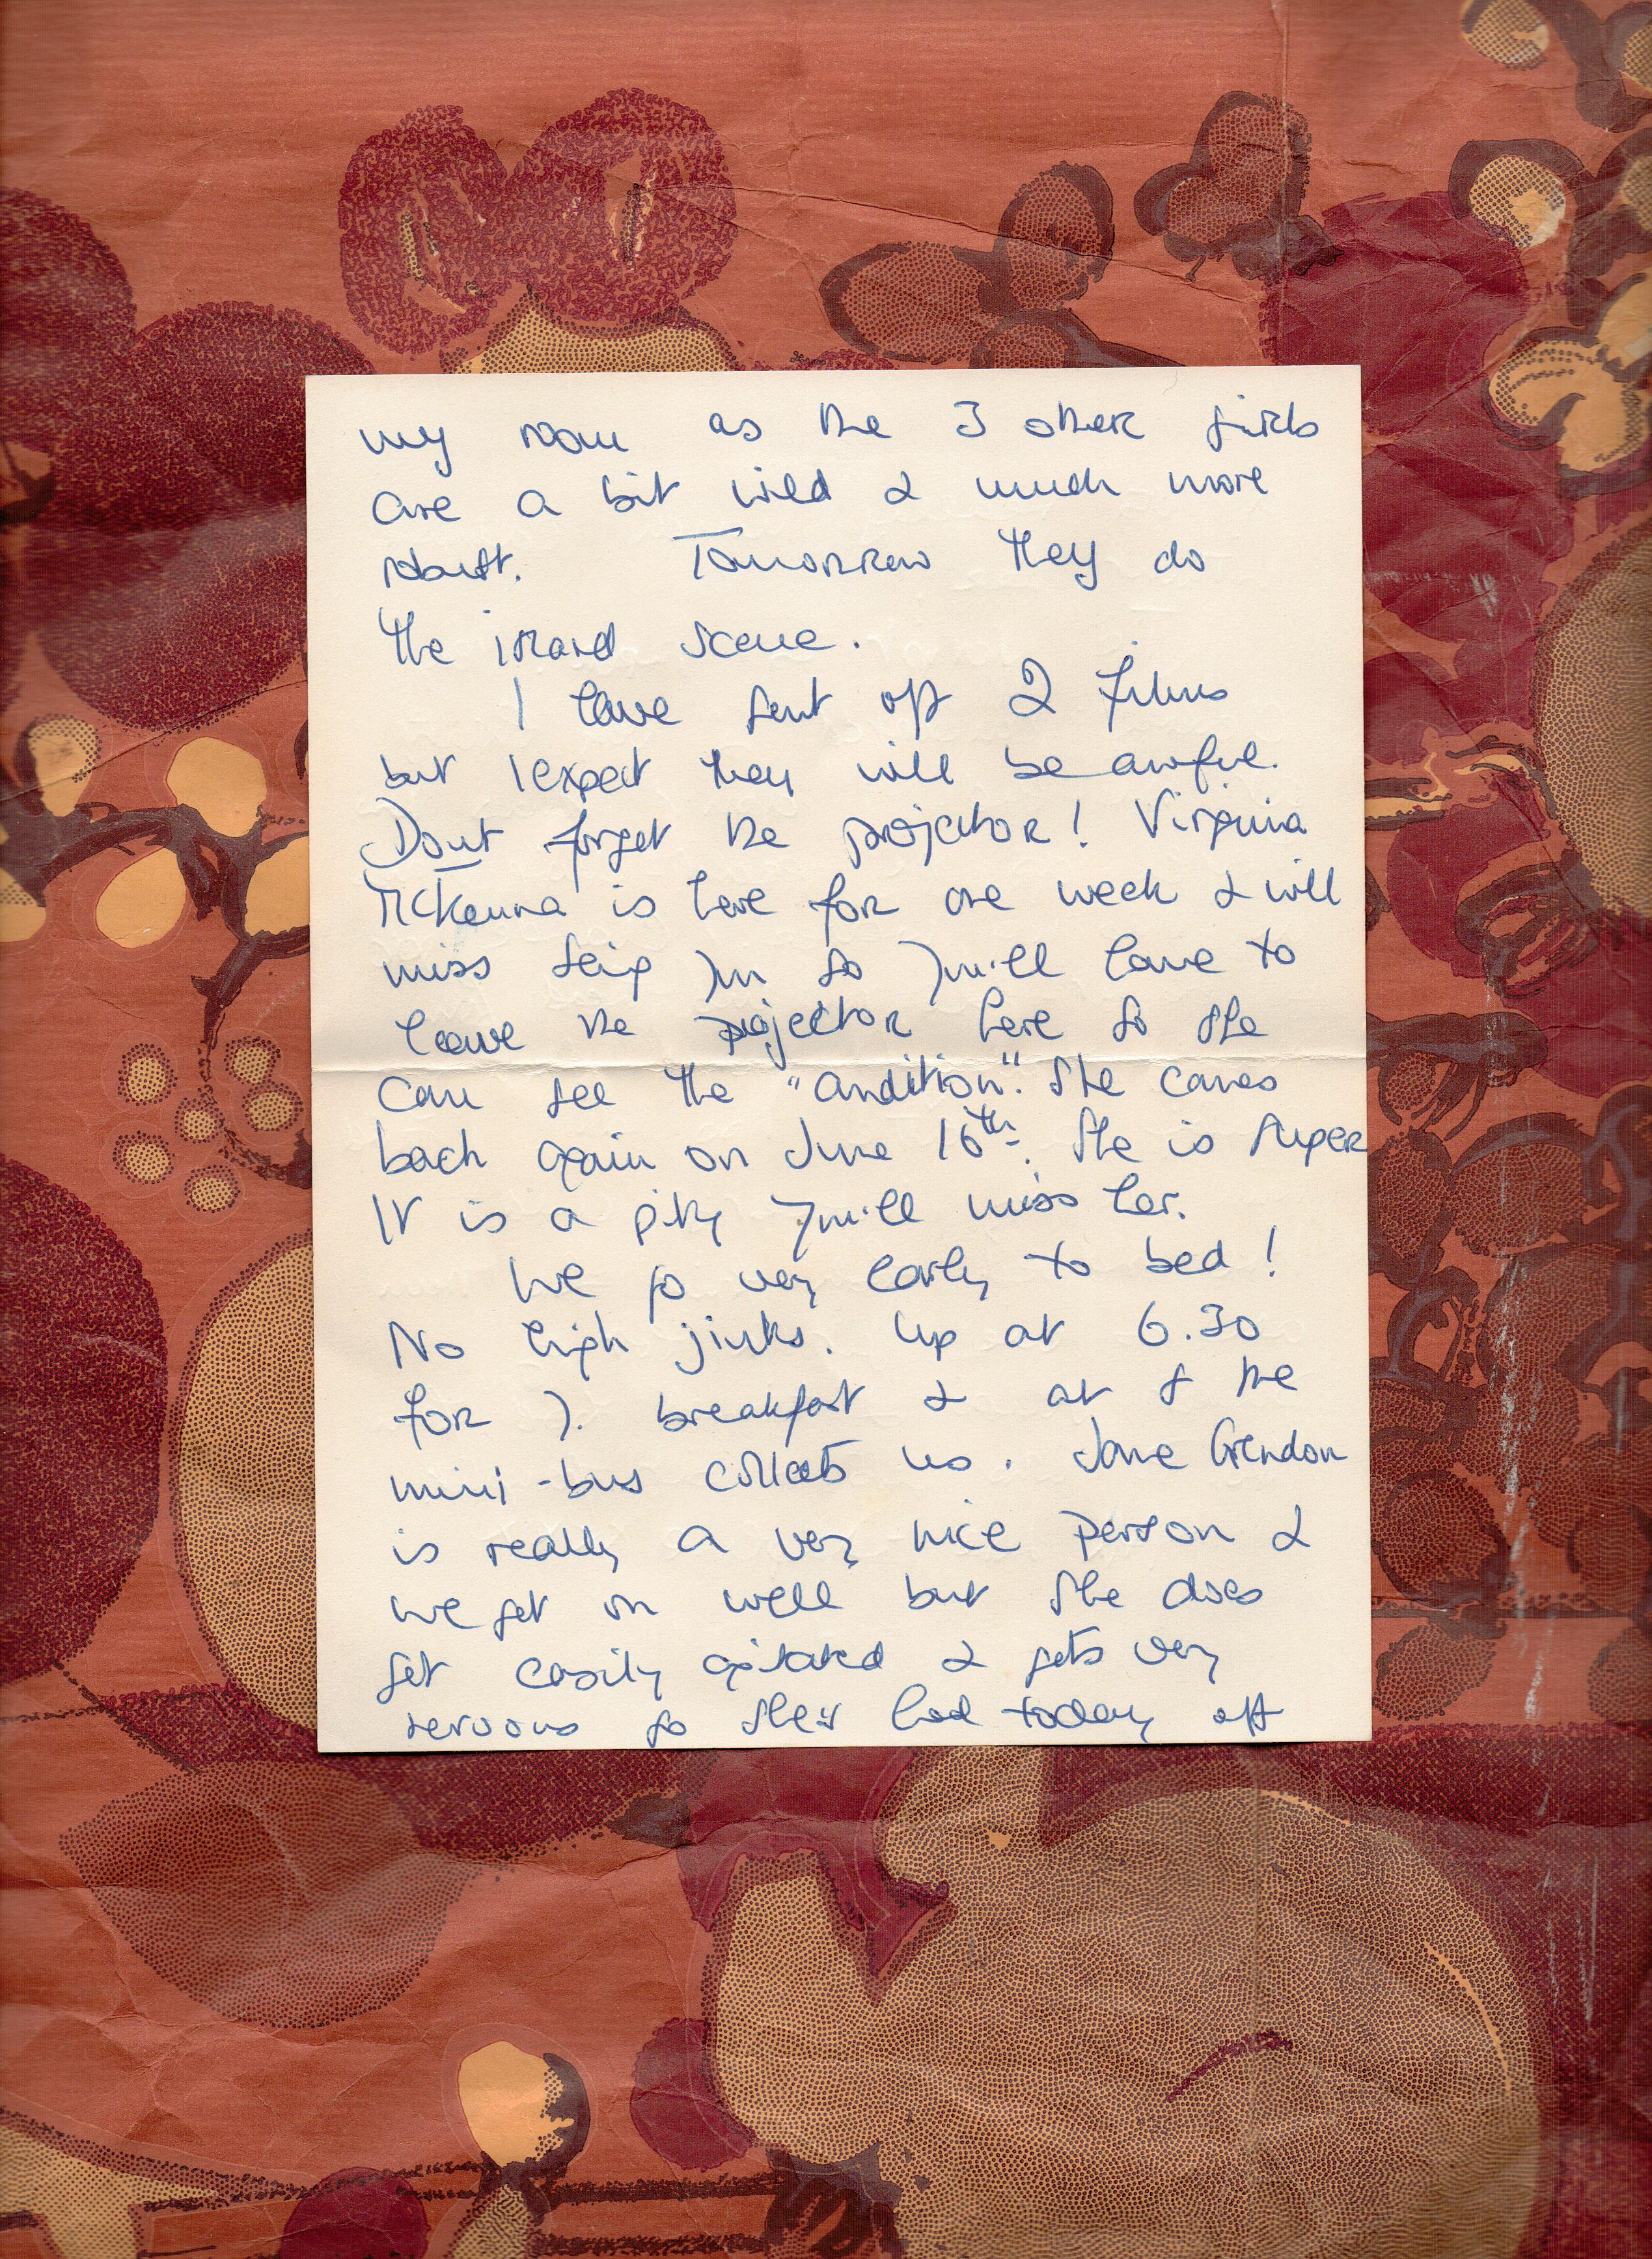 my room as the 3 other girls
are a bit wild & much more
robust. Tomorrow they do
the island scene.
I have sent off 2 films
but I expect they will be awful.
Dont forget the projector! Virginia
McKenna is here for one week & will
miss seeing so will have to
leave the projector here so she
can see the "audition". She comes
back again on June 16th. She is super
It is a pity will miss her.
We go very early to bed!
No high jinks. Up at 6.30
for 7. breakfast & at 8 the
mini-bus collects us. Jane Grendon
is really a very nice person &
we get on well but she does
get easily agitated & gets very
nervous so she's had today off